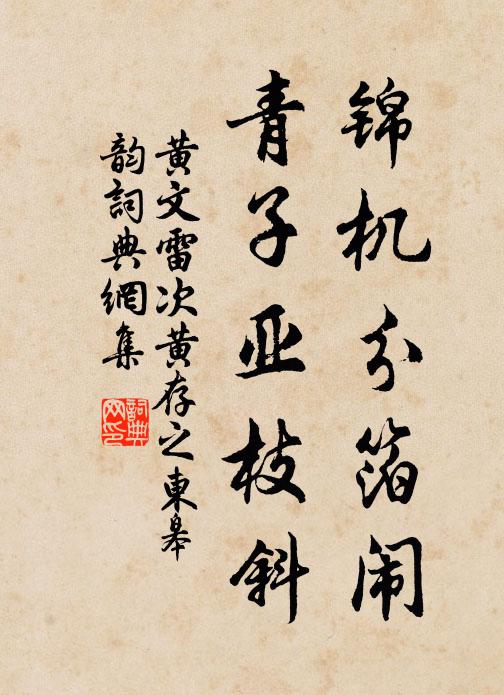 锦机分箔闹
青子亚枝斜
黄文雷次黄存之東皋
韵詞典網集
詞典网印